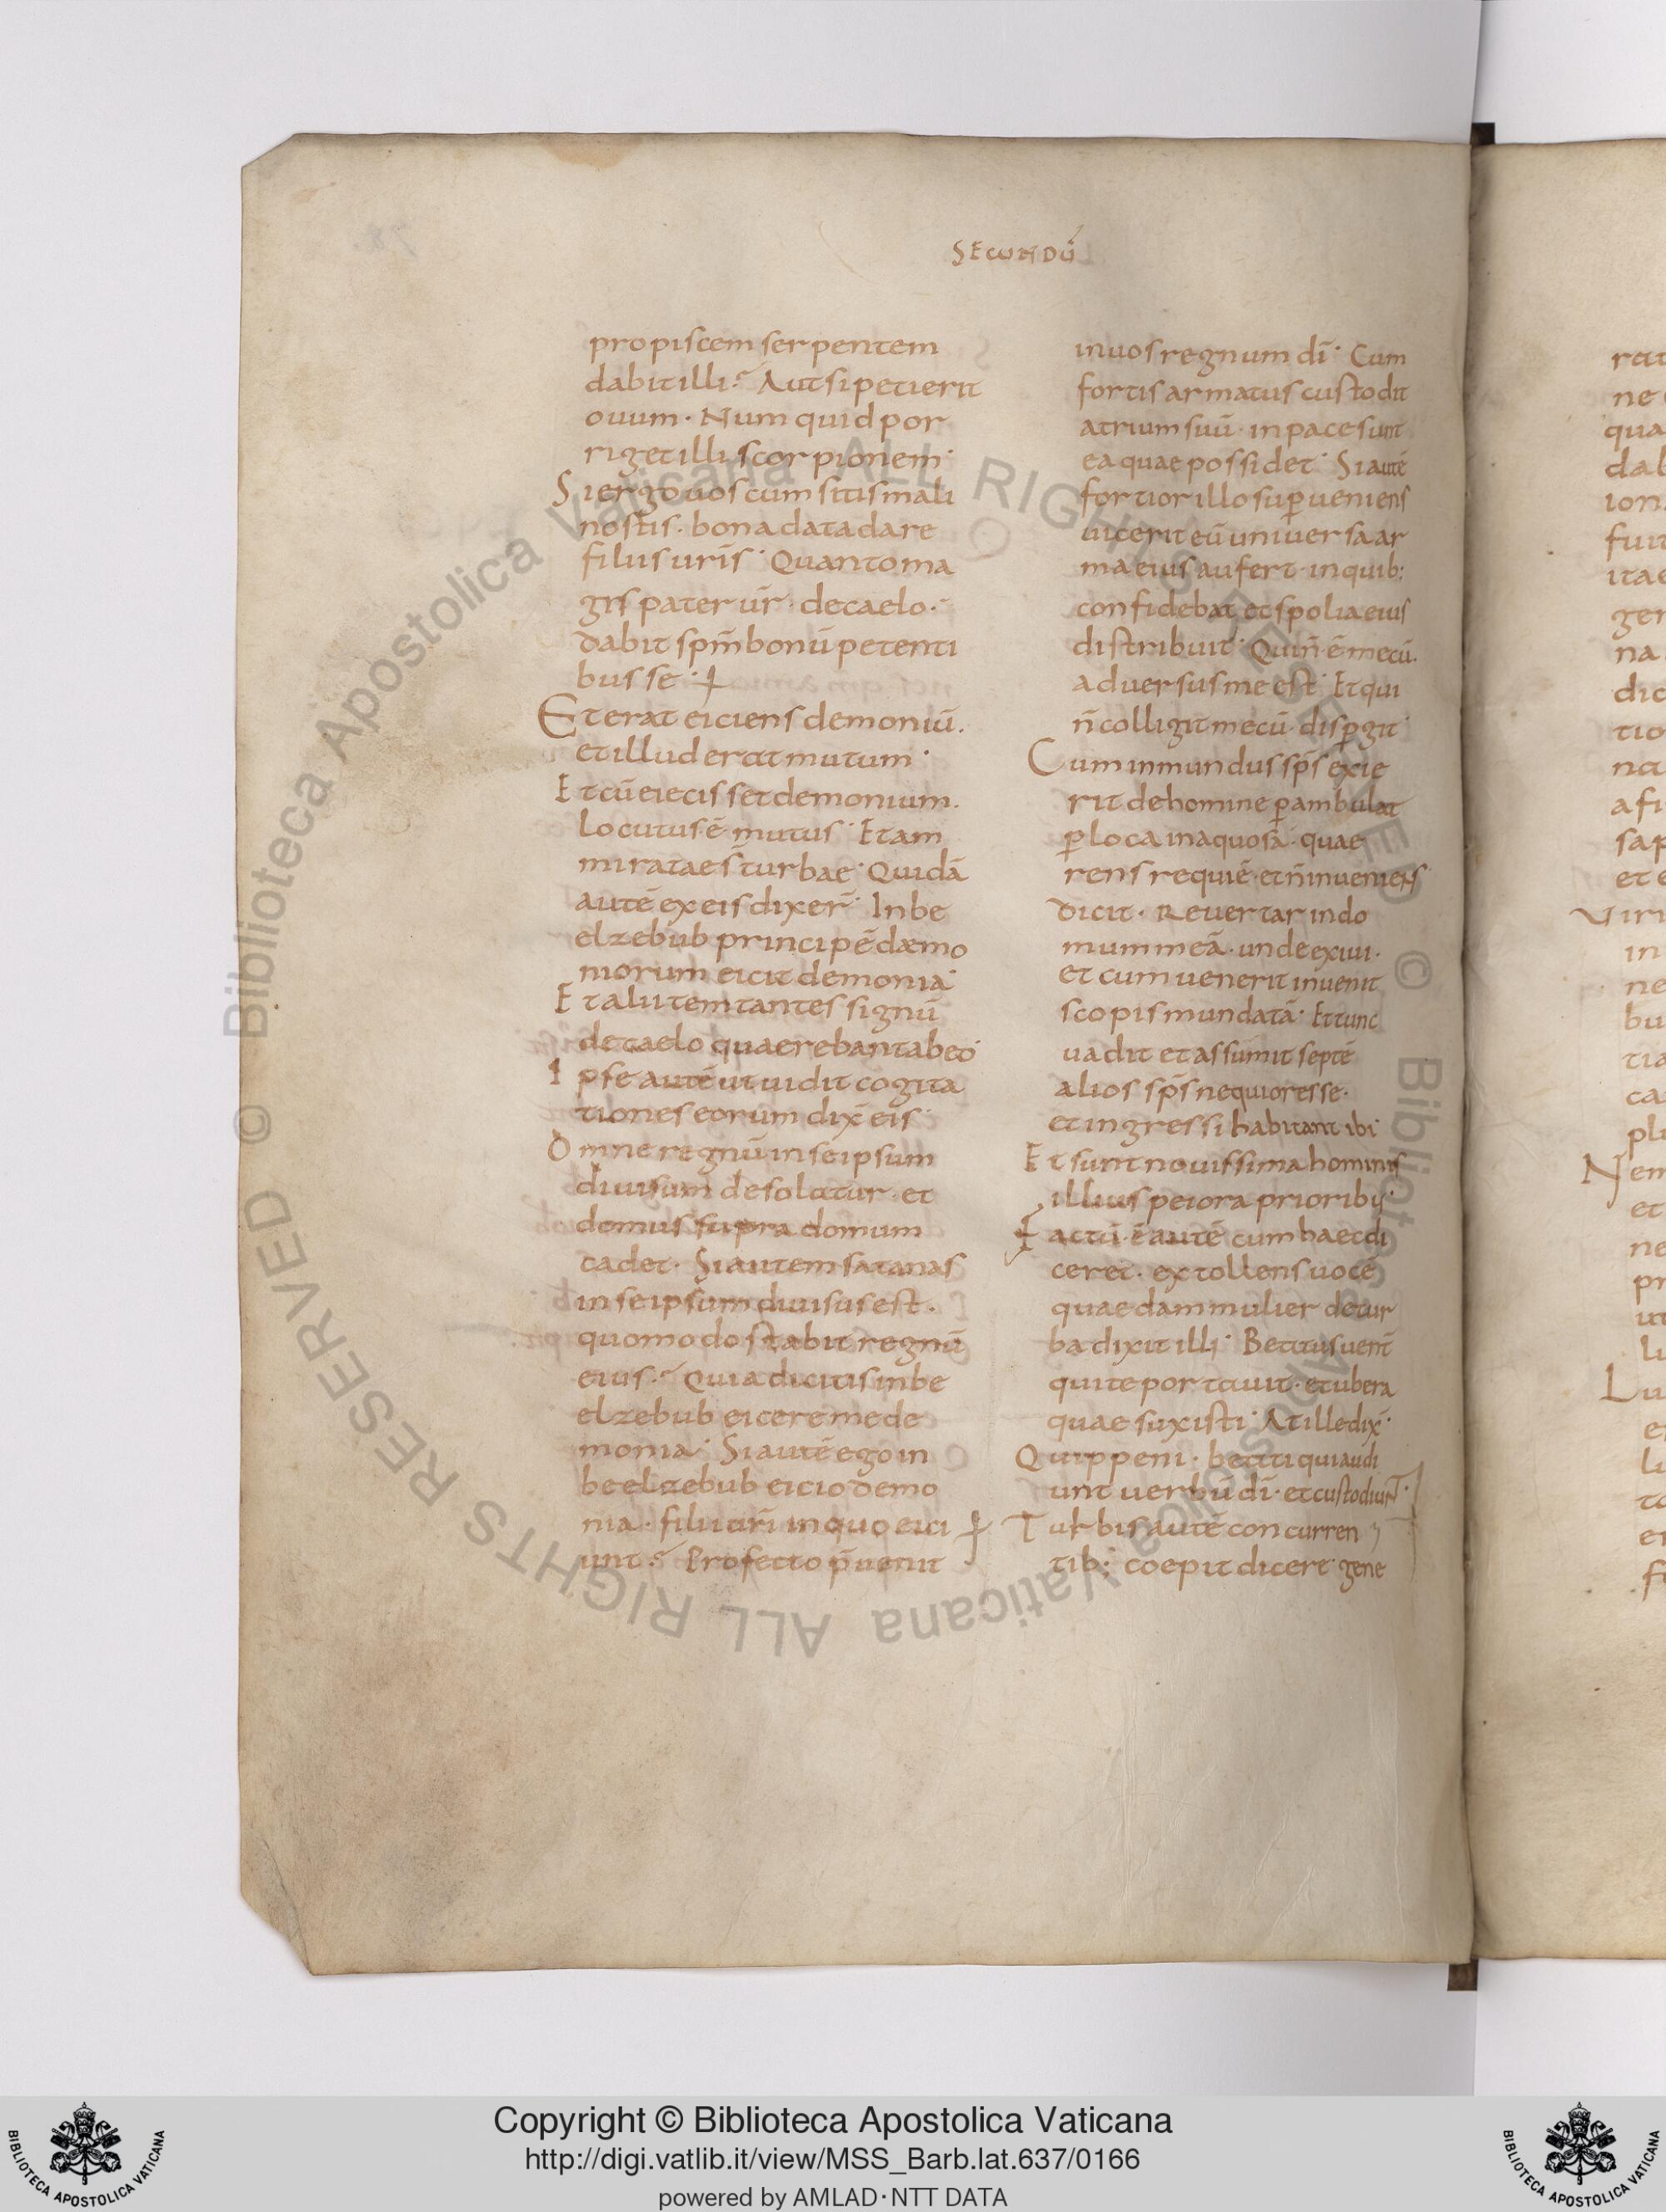 SECUNDŪ
pro piscem serpentem
dabit illi? Aut si petierit
ovum · Num quid por
riget illi scorpionem·
Si ergo vos cum sitis mali
nostis · bona data dare
filiis uris̄· Quanto ma
gis pater ur̄ · de caelo ·
dabit spm̄ bonū petenti
bus se ·
Et erat eiciens demoniū.
et illud erat mutum ·
Et cū eiecisset demonium.
locutus ē mutus · Et am
miratae s̄ turbae · Quidā
autē ex eis dixer̄ · In be
elzebub principē dæmo
niorum eicit demonia·
Et alii temtantes signū
de caelo quaerebant ab eo·
Ipse autē ut vidit cogita
tiones eorum dix̄ eis·
Omne regnū in se ipsum
divisum desolatur · et
domus supra domum
cadet · Si autem satanas
in se ipsum divisus est ·
quomodo stabit regnū
eius? Quia dicitis in be
elzebub eicere me de
monia · Si autē ego in
beelzebub eicio demo
nia · filii uri̅ in quo eici
unt? Profecto p̄venit
in vos regnum di̅ · Cum
fortis armatus custodit
atrium suū · in pace sunt
ea quae possidet · Si autē
fortior illo sup̱veniens
vicerit eū universa ar
ma eius aufert · in quib;
confidebat et spolia eius
distribuit · Qui n̄ ē mecū.
adversus me est · Et qui
n̄ colligit mecū · disp̱git·
Cum inmundus sp̄s exie
rit de homine p̱ambulat
p̱ loca inaquosa · quae
rens requiē · et n̄ inveniens
dicit · Revertar in do
mum meā · unde exivi ·
et cum venerit invenit
scopis mundatā · Et tunc
vadit et assumit septē
alios sp̄s nequiores se ·
et ingressi habitant ibi
Et sunt novissima hominis
illius peiora priorib;·
Factū · ē autē cum haec di
ceret · extollens vocē
quaedam mulier de tur
ba dixit illi · Beatus vent̄
qui te portavit · et ubera
quae suxisti · At ille dix̄·
Quippeni · beati qui audi
unt verbū di̅ · et custodiunt ·
Turbis autē concurren
tib; coepit dicere gene
Copyright © Biblioteca Apostolica Vaticana
http://digi.vatlib.it/view/MSS_Barb.lat.637/0166
powered by AMLAD·NTT DATA
BIBLIOTECA APOSTOLICA VATICANA
BIBLIOTECA APOSTOLICA VATICANA
© Biblioteca Apostolica Vaticana ALL RIGHTS RESERVED © Biblioteca Apostolica Vaticana ALL RIGHTS RESERVED